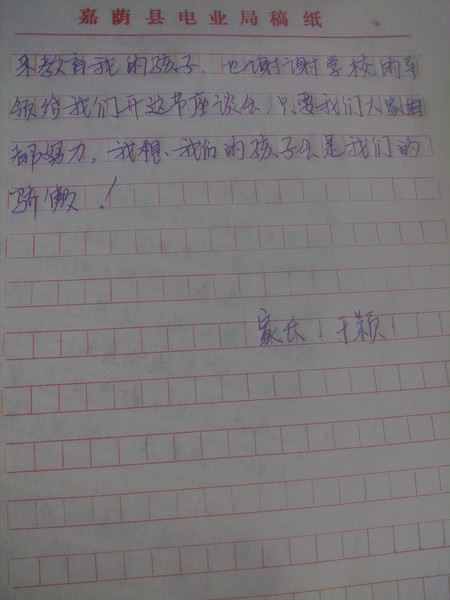 嘉荫县电业局稿纸
来教育我的孩子. 也谢谢学校的
领给我们开这节座谈会,只要我们大家
都努力,我想、我们的孩子会是我们的
骄傲!
家长:于颖